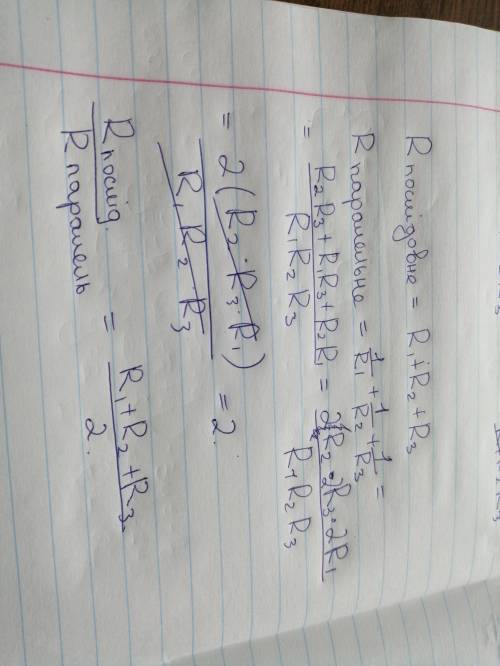 R послідовне = R₁+R₂+R₃
R паралельне = 1/R₁ + 1/R₂ + 1/R₃ =
= (R₂R₃+R₁R₃+R₂R₁)/(R₁R₂R₃) = (2R₂·2R₃·2R₁)/(R₁R₂R₃)
= 2(R₂·R₃·R₁)/(R₁R₂·R₃) = 2.
R послід. / R паралель = (R₁+R₂+R₃)/2.